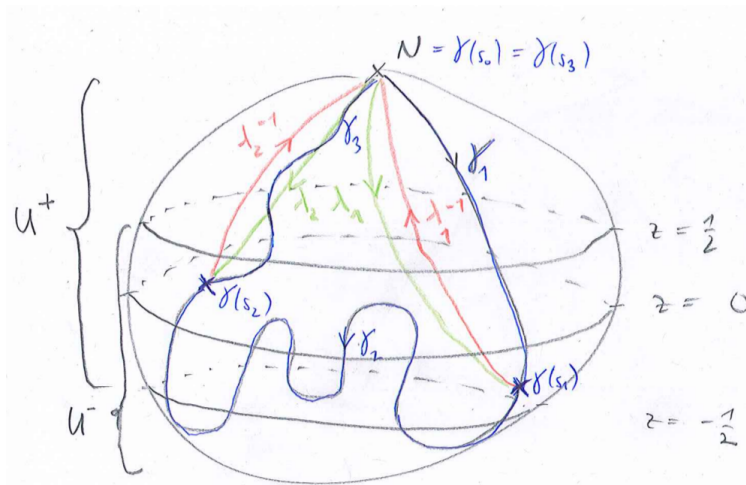 N = γ(s₀) = γ(s₃)
λ₂⁻¹
γ₃
γ₁
U⁺
λ₂ λ₁
λ₁⁻¹
z = 1/2
γ(s₂)
z = 0
γ₂
γ(s₁)
U⁻
z = -1/2